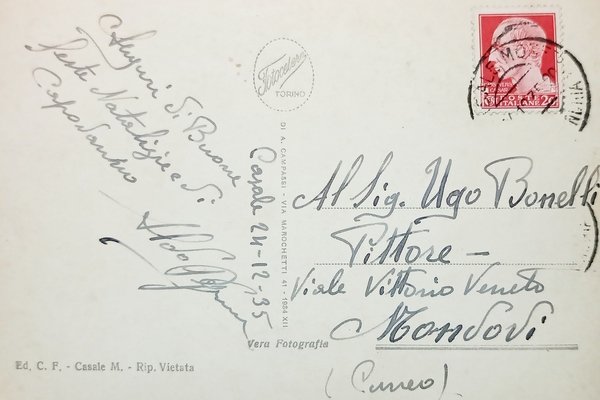 Auguri di Buone
Feste Natalizie e di
Capodanno
Aldo
Casale 24-12-35
Fotocelere
TORINO
DI A. CAMPASSI - VIA MAROCHETTI 41 - 1934 XII
POSTE
ITALIANE 20
Al Sig. Ugo Bonelli
Pittore -
Viale Vittorio Veneto
Mondovì
(Cuneo)
Vera Fotografia
Ed. C. F. - Casale M. - Rip. Vietata